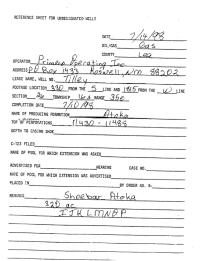 REFERENCE SHEET FOR UNDESIGNATED WELLS
DATE 7/14/98
OIL/GAS Gas
COUNTY Lea
OPERATOR Primero Operating Inc
ADDRESS PO Box 1433 Roswell, NM 88202
LEASE NAME, WELL NO. Tilley
FOOTAGE LOCATION 330 FROM THE S LINE AND FROM THE W LINE
SECTION 26 TOWNSHIP 16s RANGE 35e
COMPLETION DATE 7/10/98
NAME OF PRODUCING FORMATION Atoka
TOP OF PERFORATIONS 11430 - 11488
DEPTH TO CASING SHOE
C-123 FILED
NAME OF POOL FOR WHICH EXTENSION WAS ASKED
ADVERTISED FOR HEARING CASE NO.
NAME OF POOL FOR WHICH EXTENSION WAS ADVERTISED
PLACED IN BY ORDER NO. R-
REMARKS Shoebar Atoka
320 ac
IJKLMNOP